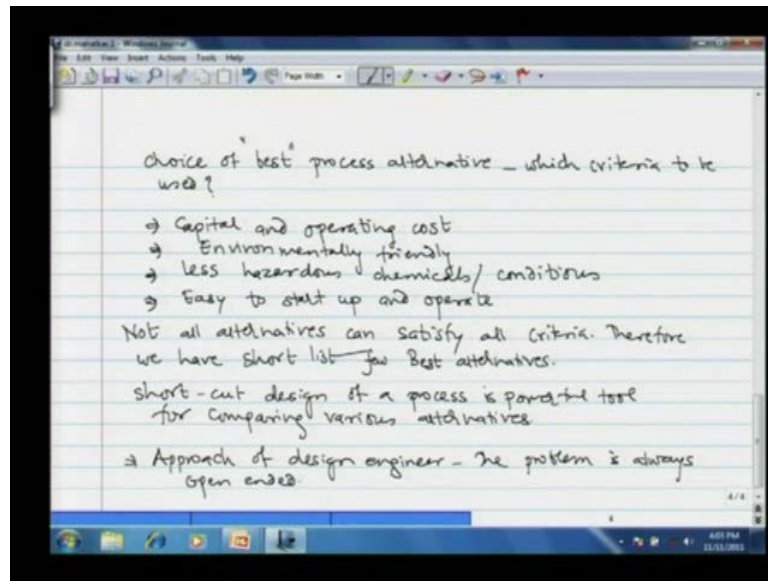 dr.mahalkar.2 - Windows Journal
File Edit View Insert Actions Tools Help
Page Width
choice of "best" process alternative - which criteria to be
used?
⇒ Capital and operating cost
⇒ Environmentally friendly
⇒ less hazerdous chemicals/ conditions
⇒ Easy to start up and operate
Not all alternatives can satisfy all criteria. Therefore
we have short list few Best alternatives.
short-cut design of a process is powerful tool
for comparing various alternatives
⇒ Approach of design engineer - The problem is always
open ended.
4/4
4:03 PM
11/11/2011